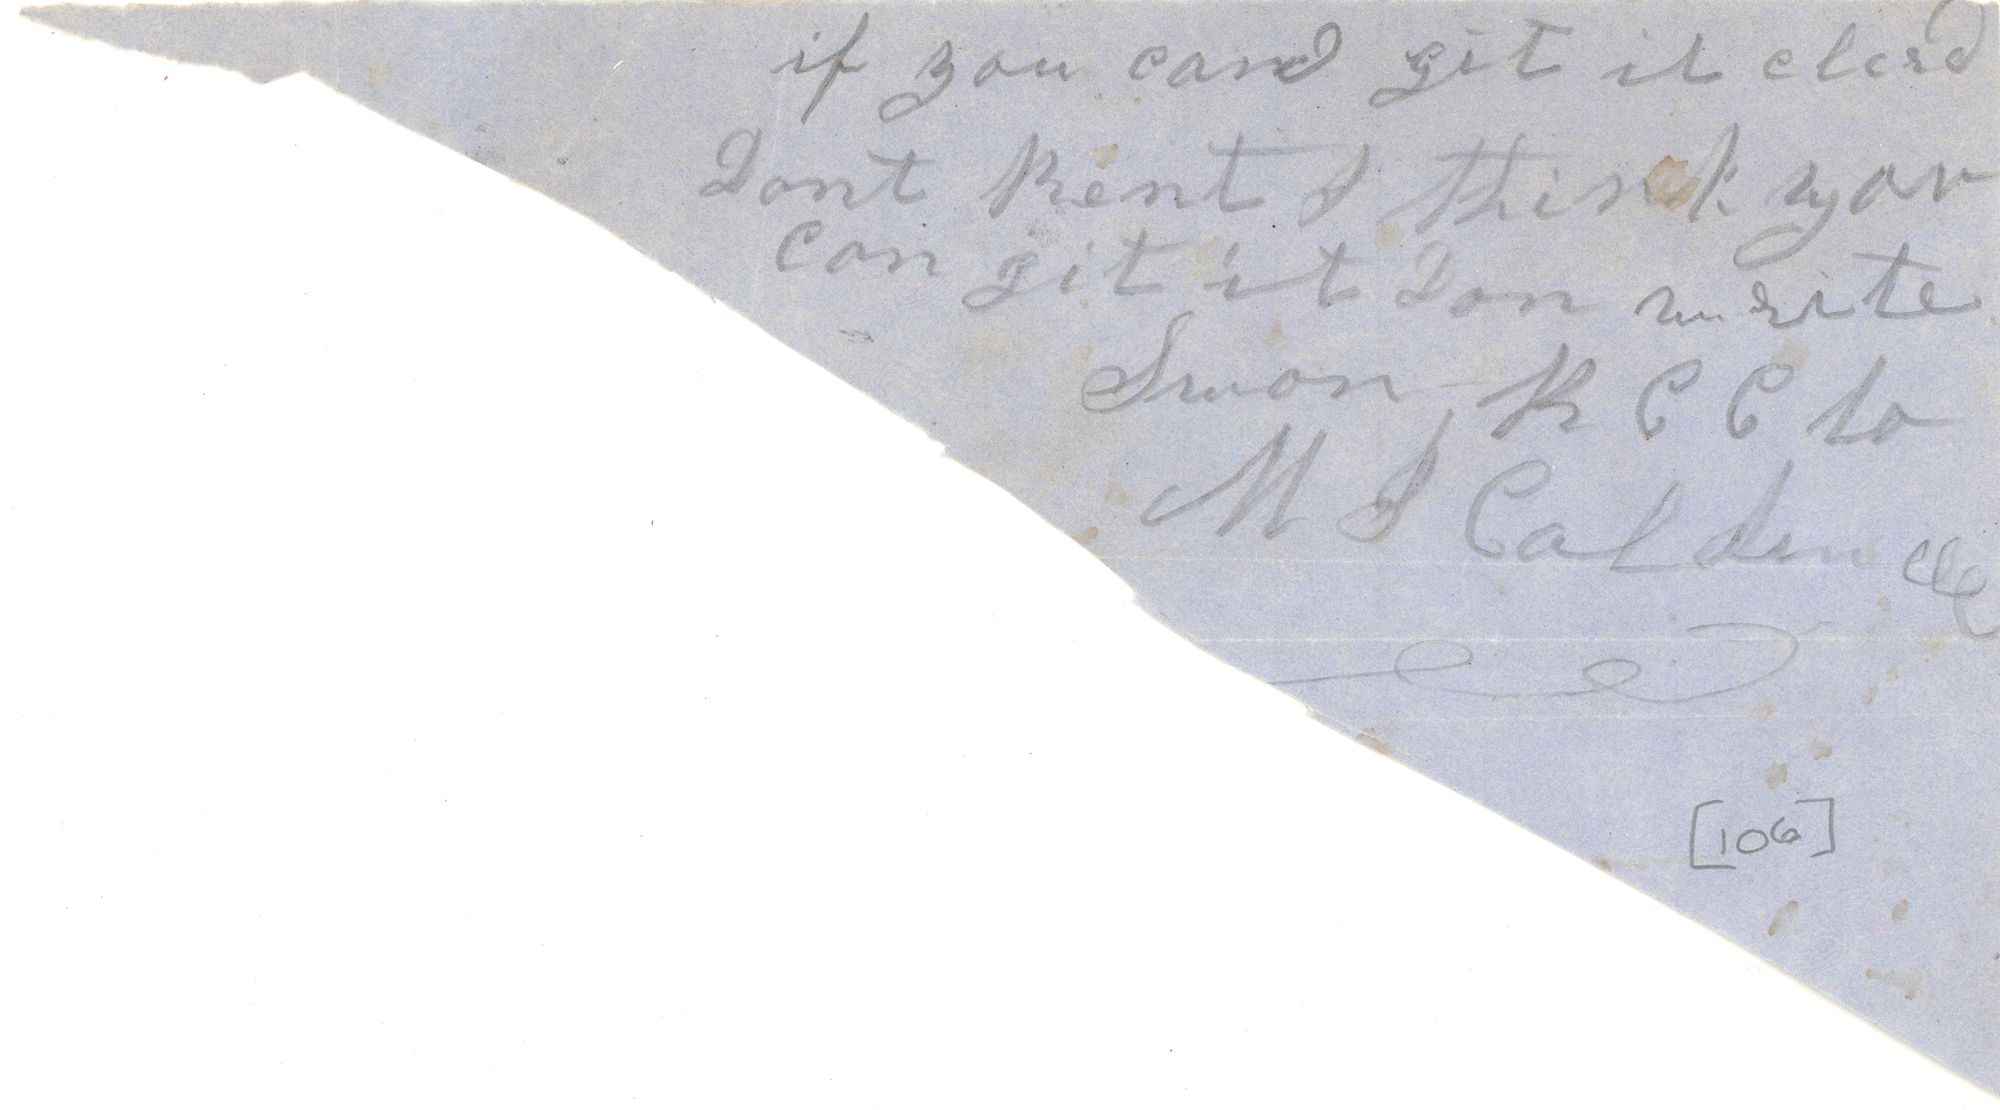 if you cand git it clerd
Dont Rent I think you
can git it Don write
Swon R C C to
M I Caldw
[106]